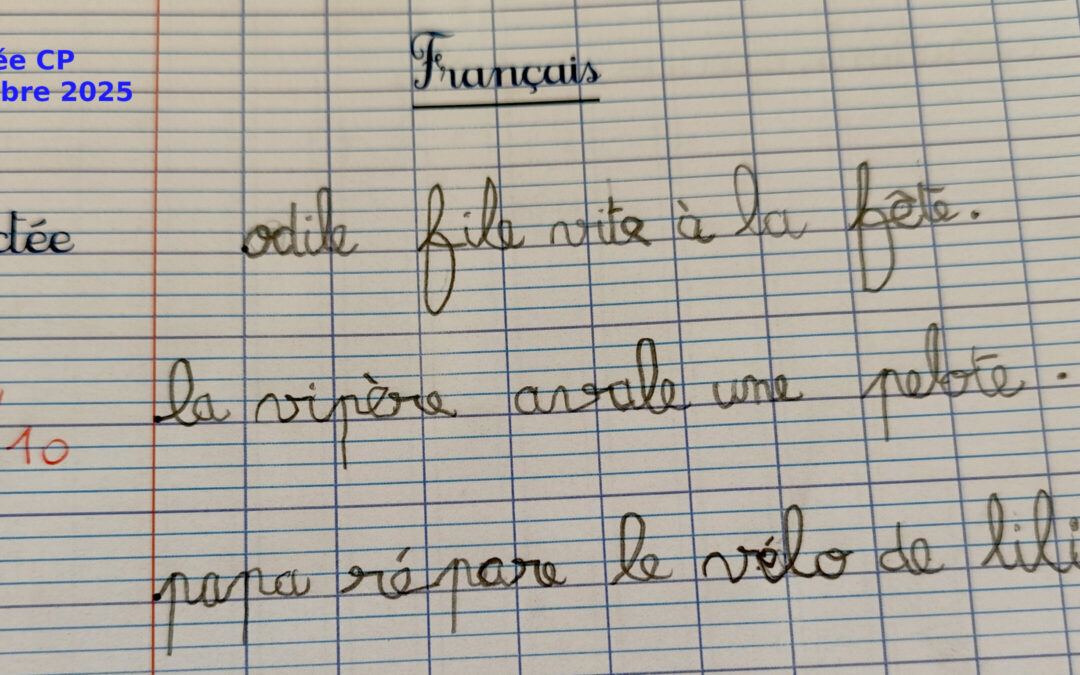 ée CP
bre 2025
Français
dictée
odile file vite à la fête.
la vipère avale une pelote.
10
papa répare le vélo de lili